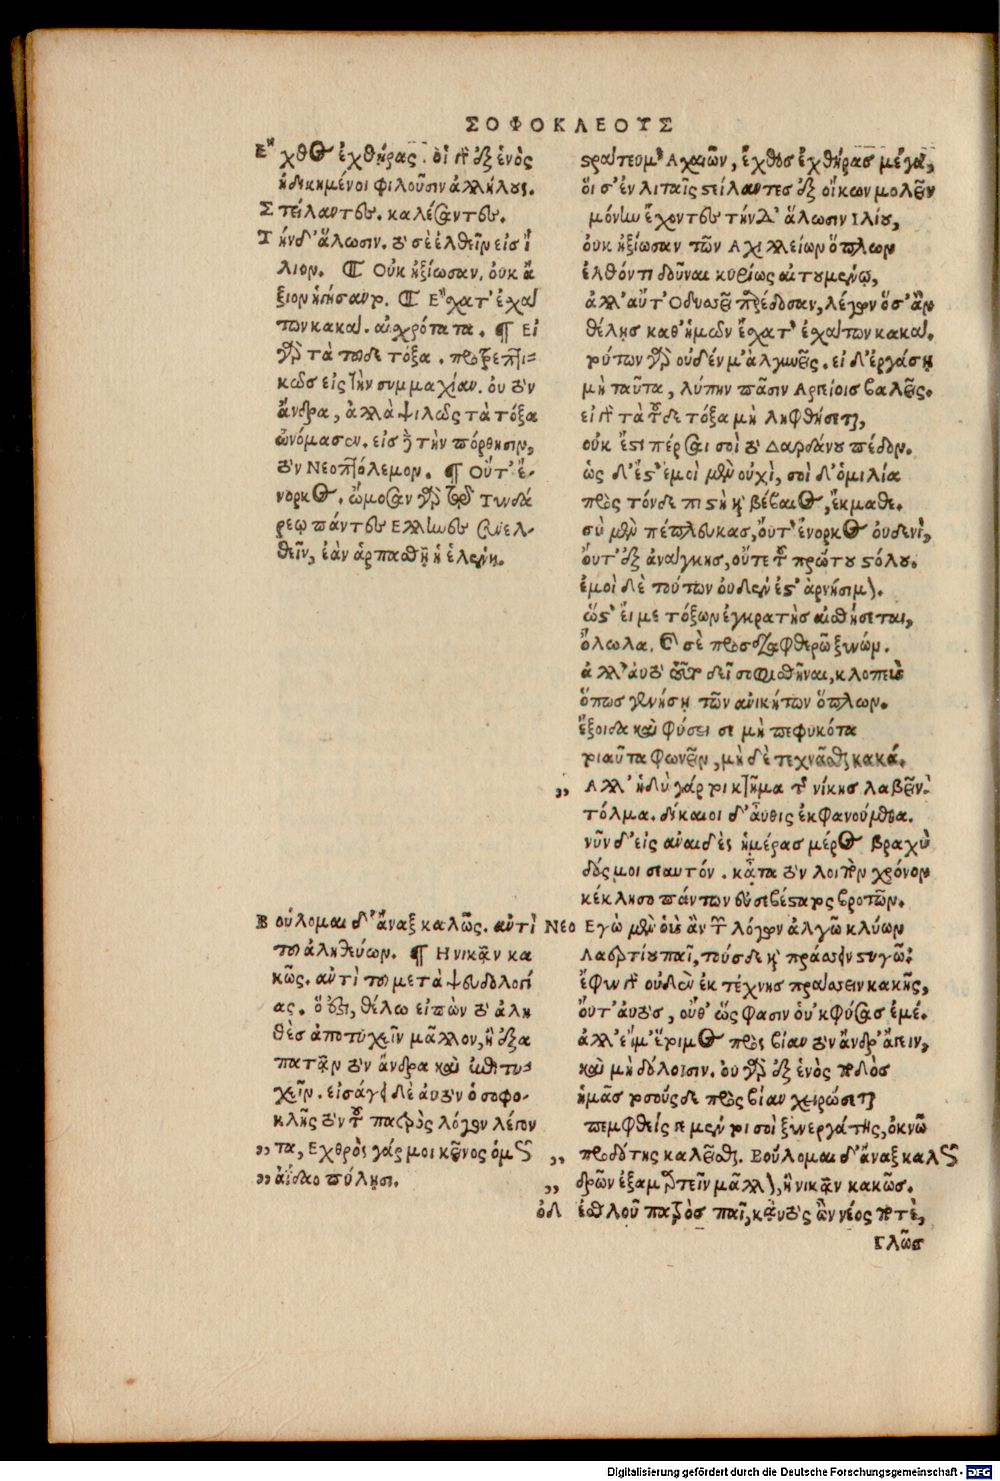 ΣΟΦΟΚΛΕΟΥΣ
Ἔχθος ἐχθήρας. οἱ γὰρ ἐξ ἑνὸς
ἠδικημένοι φιλοῦσιν ἀλλήλους.
Στείλαντες. καλέσαντες.
Τήνδ' ἅλωσιν. τὸ σὲ ἐλθεῖν εἰς ἴ
λιον. ¶ Οὐκ ἠξίωσαν. οὐκ ἄ
ξιον ἡγήσαντο. ¶ Ἔσχατ' ἐσχά
των κακά. αἰσχρότατα. ¶ Εἰ
γὰρ τὰ τοῦδε τόξα. προτρεπτι=
κῶς εἰς τὴν συμμαχίαν. οὐ τὸν
ἄνδρα, ἀλλὰ ψιλῶς τὰ τόξα
ὠνόμασεν. εἰς γὰρ τὴν πόρθησιν,
τὸν Νεοπτόλεμον. ¶ Οὔτ' ἔ-
νορκος. ὤμοσαν γὰρ τῷ Τυνδά
ρεῳ πάντες Ἕλληνες συνελ-
θεῖν, ἐὰν ἁρπασθῇ ἡ ἑλένη.
Βούλομαι δ' ἄναξ καλῶς. ἀντὶ
τοῦ ἀληθεύων. ¶ Ἢ νικᾶν κα
κῶς. ἀντὶ τοῦ μετὰ ψευδολογί
ας. ὅ ἐστι, θέλω εἰπὼν τὸ ἀλη
θὲς ἀποτυχεῖν μᾶλλον, ἢ ἐξα
πατᾶν τὸν ἄνδρα καὶ ἐπιτυ-
χεῖν. εἰσάγει δὲ αὐτὸν ὁ σοφο-
κλῆς τὸν τοῦ πατρὸς λόγον λέγον
,, τα, Ἐχθρὸς γάρ μοι κεῖνος ὁμῶς
,, ἀΐδαο πύλῃσι.
στράτευμ' Ἀχαιῶν, ἔχθος ἐχθήρας μέγα,
οἵ σ' ἐν λιταῖς στείλαντες ἐξ οἴκων μολεῖν
μόνην ἔχοντες τήνδ' ἅλωσιν Ἰλίου,
οὐκ ἠξίωσαν τῶν Ἀχιλλείων ὅπλων
ἐλθόντι δοῦναι κυρίως αἰτουμένῳ,
ἀλλ' αὔτ' Ὀδυσσεῖ παρέδοσαν, λέγων ὅσ' ἂν
θέλῃς καθ' ἡμῶν ἔσχατ' ἐσχάτων κακά.
τούτων γὰρ οὐδέν μ' ἀλγυνεῖς. εἰ δ' ἐργάσῃ
μὴ ταῦτα, λύπην πᾶσιν Ἀργείοις βαλεῖς.
εἰ γὰρ τὰ τοῦδε τόξα μὴ ληφθήσεται,
οὐκ ἔστι πέρσαι σοὶ τὸ Δαρδάνου πέδον.
ὡς δ' ἔστ' ἐμοὶ μὲν οὐχὶ, σοὶ δ' ὁμιλία
πρὸς τόνδε πιστὴ καὶ βέβαιος, ἔκμαθε.
σὺ μὲν πέπλευκας, οὔτ' ἔνορκος οὐδενὶ,
οὔτ' ἐξ ἀνάγκης, οὔτε τοῦ πρώτου στόλου.
ἐμοὶ δὲ τούτων οὐδέν ἐστ' ἀρνήσιμον.
ὥστ' εἴ με τόξων ἐγκρατὴς αἰσθήσεται,
ὄλωλα. καὶ σὲ προσδιαφθερῶ ξυνών.
ἀλλ' αὐτὸ τοῦτο δεῖ σοφισθῆναι, κλοπεὺς
ὅπως γενήσῃ τῶν ἀνικήτων ὅπλων.
ἔξοιδα καὶ φύσει σε μὴ πεφυκότα
τοιαῦτα φωνεῖν, μὴ δὲ τεχνᾶσθαι κακά.
,, Ἀλλ' ἡδὺ γάρ τοι κτῆμα τῆς νίκης λαβεῖν.
τόλμα. δίκαιοι δ' αὖθις ἐκφανούμεθα.
νῦν δ' εἰς ἀναιδὲς ἡμέρας μέρος βραχὺ
δός μοι σεαυτόν. κᾆτα τὸν λοιπὸν χρόνον
κέκλησο πάντων εὐσεβέστατος βροτῶν.
Νεο Ἐγὼ μὲν οὓς ἂν τῶν λόγων ἀλγῶ κλύων
Λαερτίου παῖ, τούσδε καὶ πράσσειν στυγῶ.
ἔφυν γὰρ οὐδὲν ἐκ τέχνης πράσσειν κακῆς,
οὔτ' αὐτὸς, οὔθ' ὥς φασιν οὑκφύσας ἐμέ.
ἀλλ' εἴμ' ἕτοιμος πρὸς βίαν τὸν ἄνδρ' ἄγειν,
καὶ μὴ δόλοισιν. οὐ γὰρ ἐξ ἑνὸς ποδὸς
ἡμᾶς τοσούσδε πρὸς βίαν χειρώσεται
πεμφθείς γε μέντοι σοὶ ξυνεργάτης, ὀκνῶ
,, προδότης καλεῖσθαι. Βούλομαι δ' ἄναξ καλῶς
,, δρῶν ἐξαμαρτεῖν μᾶλλον, ἢ νικᾶν κακῶς.
ὀδ ἐσθλοῦ πατρὸς παῖ, καὐτὸς ὢν νέος ποτὲ,
Γλῶσ
Digitalisierung gefördert durch die Deutsche Forschungsgemeinschaft - DFG